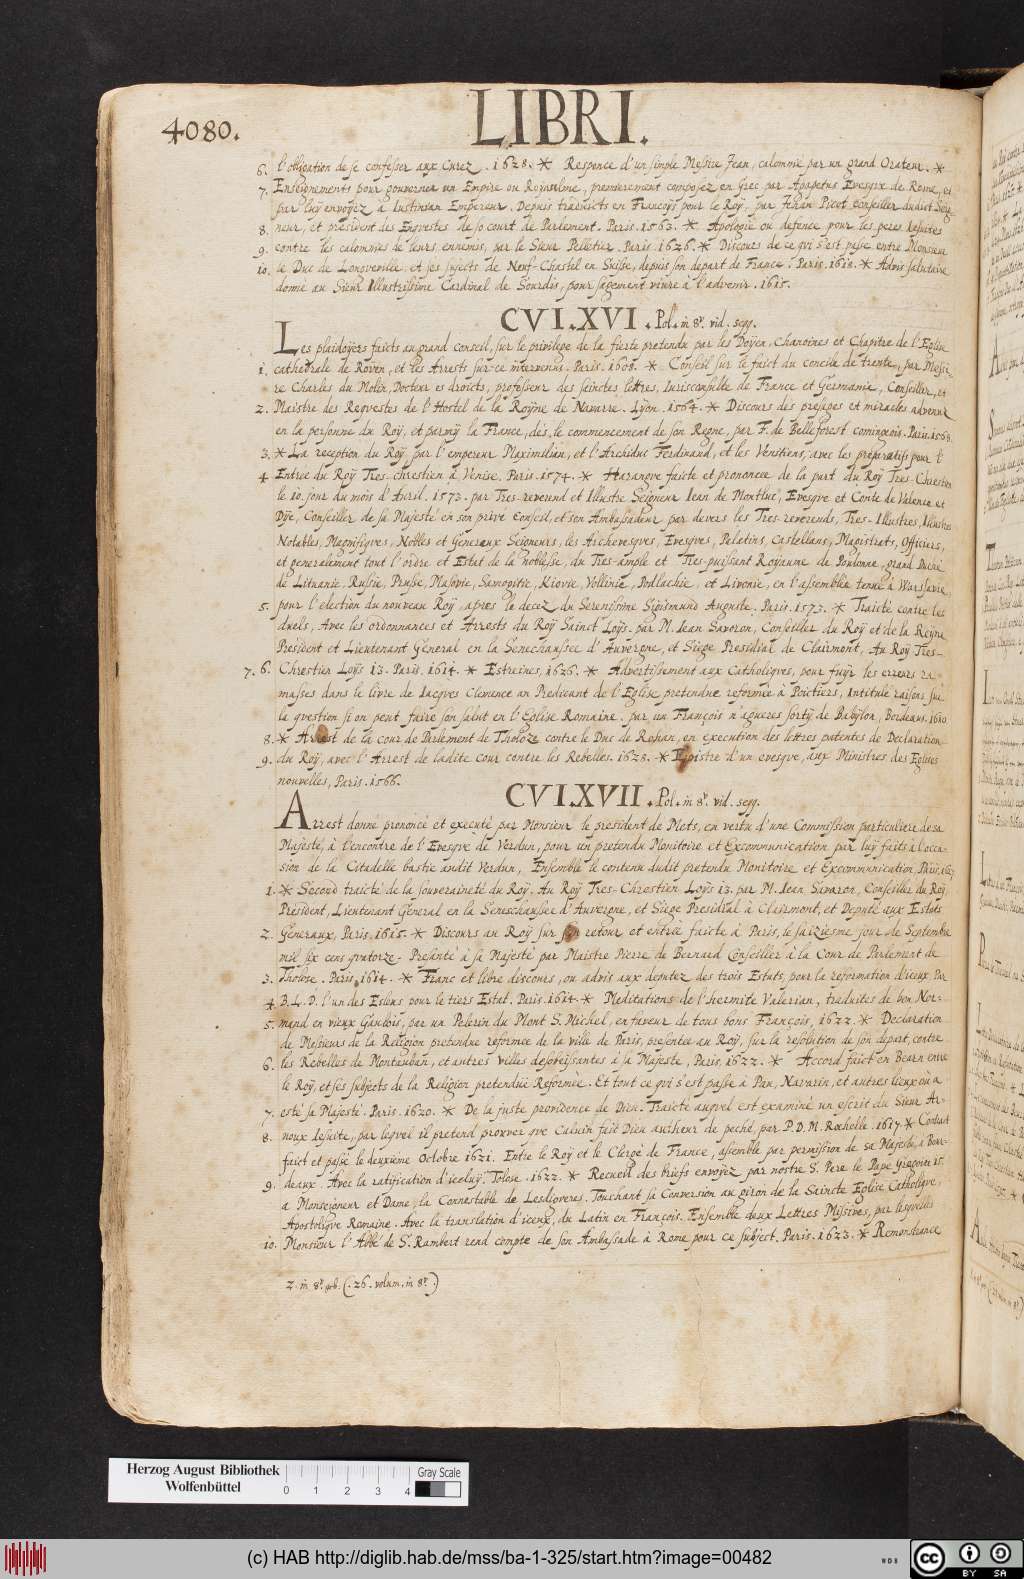 4080.
LIBRI.
6. l'obligation de se confesser aux Curez. 1628. * Responce d'un simple Messire Jean, calomnié par un grand Orateur. *
7. Enseignements pour gouverner un Empire ou Royaulme, premierement composez en Grec par Agapetus Evesque de Rome, et
par luy envoyez à Iustinian Empereur. Depuis traduicts en François pour le Roy, par Jehan Picot conseiller dudict Seig-
8. neur, et président des Enquestes de so court de Parlement. Paris. 1563. * Apologie ou defence pour les peres Iesuites
9. contre les calomnies de leurs ennemis, par le Sieur Pelletier. Paris. 1626. * Discours de ce qui s'est passe entre Monsieur
10. le Duc de Longueville et ses sujects de Neuf-Chastel en Suisse, depuis son depart de France. Paris. 1618. * Advis salutaire
donné au Sieur Illustrissime Cardinal de Sourdis, pour sagement viure à l'advenir. 1615.
CVI.XVI. Pol. in 8º. vid. seqq.
Les plaidoyers faicts au grand conseil, sur le privilege de la fierte pretendu par les Doyen, Chanoines et Chapitre de l'Eglise
1. cathedrale de Roüen, et les Arrests sur ce intervenus. Paris. 1608. * Conseil sur le faict du concile de trente, par Messi-
re Charles du Molin, Docteur es droicts, professeur des sainctes lettres, Iurisconsulte de France et Germanie, Conseiller, et
2. Maistre des Requestes de l'Hostel de la Royne de Navarre. Lyon. 1564. * Discours des presages et miracles advenuz
en la personne du Roy, et parmy la France, dés le commencement de son Regne, par F. de Belleforest comingeois. Paris. 1568.
3. * La reception du Roy par l'empereur Maximilian, et l'Archiduc Ferdinand, et les Venitiens, avec les préparatifs pour l'
4 Entree du Roy Tres-chrestien à Venise. Paris. 1574. * Harangue faicte et prononcee de la part du Roy Tres-Chrestien
le 10. jour du mois d'Avril. 1573. par Tres-reverend et Illustre Seigneur Iean de Montluc, Evesque et Conte de Valence et
Dye, Conseiller de sa Majesté en son privé conseil, et son Ambassadeur par devers les Tres-reverends, Tres-Illustres, Illustres
Notables, Magnifiques, Nobles et Genereux Seigneurs, les Archevesques, Evesques, Palatins, Castellans, Magistrats, Officiers,
et generalement tout l'ordre et Estat de la noblesse, du Tres-ample et Tres-puissant Royaume de Poulonne, grand Duché
de Lituanie, Russie, Prusse, Masovie, Samogitie, Kiovie, Vollinie, Podlachie, et Livonie, en l'assemblee tenue à Warssavie,
5. pour l'election du nouveau Roy, apres le decez du Serenissime Sigismund Auguste. Paris. 1573. * Traicté contre les
duels, Avec les ordonnances et Arrests du Roy Sainct Loys. par M. Iean Savaron, Conseiller du Roy et de la Reyne
President et Lieutenant General en la Senechaussee d'Auvergne, et Siege Presidial de Clairmont, Au Roy Tres-
7. 6. Chrestien Loys 13. Paris. 1614. * Estreines, 1626. * Advertissement aux Catholiques, pour fuyr les erreurs ra-
massés dans le livre de Iacques Clemence un Predicant de l'Eglise pretendue reformée à Poictiers, Intitulé raisons sur
la question si on peut faire son salut en l'Eglise Romaine. par un François n'agueres sorty de Babylon, Bordeaux. 1610.
8. * Arrest de la cour de Parlement de Tholoze contre le Duc de Rohan, en execution des lettres patentes de Declaration
9. du Roy, avec l'Arrest de ladite cour contre les Rebelles. 1628. * Epistre d'un evesque, aux Ministres des Eglises
nouvelles, Paris. 1566.
CVI.XVII. Pol. in 8º. vid. seqq.
Arrest donné prononcé et executé par Monsieur le president de Mets, en vertu d'une Commission particuliere de sa
Majesté, à l'encontre de l'Evesque de Verdun, pour un pretendu Monitoire et Excommunication par luy faits à l'occa-
sion de la Citadelle bastie audit Verdun, Ensemble le contenu dudit pretendu Monitoire et Excommunication, Paris. 1627.
1. * Second traicté de la souveraineté du Roy. Au Roy Tres-Chrestien Loys 13. par M. Iean Savaron, Conseiller du Roy,
President, Lieutenant General en la Seneschaussee d'Auvergne, et Siege Presidial à Clairmont, et Deputé aux Estats
2. Generaux, Paris. 1615. * Discours au Roy sur son retour et entrée faicte à Paris, le saiziesme jour de Septembre
mil six cens quatorze. Presanté à sa Majesté par Maistre Pierre de Bernard Conseiller à la Cour de Parlement de
3. Tholose. Paris, 1614. * Franc et libre discours, ou advis aux deputez des trois Estats, pour la reformation d'iceux. Par
4. B. L. D. l'un des Esleus pour le tiers Estat. Paris. 1614. * Meditations de l'hermite Valerian, traduites de bon Nor-
5. mand en vieux Gaulois, par un Pelerin du Mont S. Michel, en faveur de tous bons François, 1622. * Declaration
de Messieurs de la Religion pretendue reformee de la ville de Paris, presentee au Roy, sur la resolution de son depart, contre
6. les Rebelles de Montauban, et autres villes desobeïssantes à sa Majeste, Paris, 1622. * Accord faict en Bearn entre
le Roy, et ses subjets de la Religion pretenduë Reformée. Et tout ce qui s'est passé à Pau, Navarin, et autres lieux où a
7. esté sa Majesté. Paris. 1620. * De la juste providence de Dieu. Traicté auquel est examiné un escrit du Sieur Ar-
8. noux Iesuite, par lequel il pretend prouver que Calvin fait Dieu autheur de peché, par P.D.M. Rochelle. 1617. * Contract
faict et passé le deuxieme Octobre 1621. Entre le Roy et le Clergé de France, assemblé par permission de sa Majesté, à Bour-
9. deaux. Avec la ratification d'iceluy. Tolose. 1622. * Recueil des briefs envoyez par nostre S. Pere le Pape Gregoire 15.
a Monseigneur et Dame, la Connestable de Lesdigueres. Touchant sa Conversion au giron de la Saincte Eglise Catholique,
Apostolique Romaine. Avec la translation d'iceux, du Latin en François. Ensemble deux Lettres Missives, par lesquelles
10. Monsieur l'Abbé de S. Rambert rend compte de son Ambassade à Rome pour ce subject. Paris. 1623. * Remonstrance
2. in 8º. (.26. volum. in 8º.)
Herzog August Bibliothek
Wolfenbüttel
0 1 2 3 4
Gray Scale
(c) HAB http://diglib.hab.de/mss/ba-1-325/start.htm?image=00482
WDB
cc BY SA